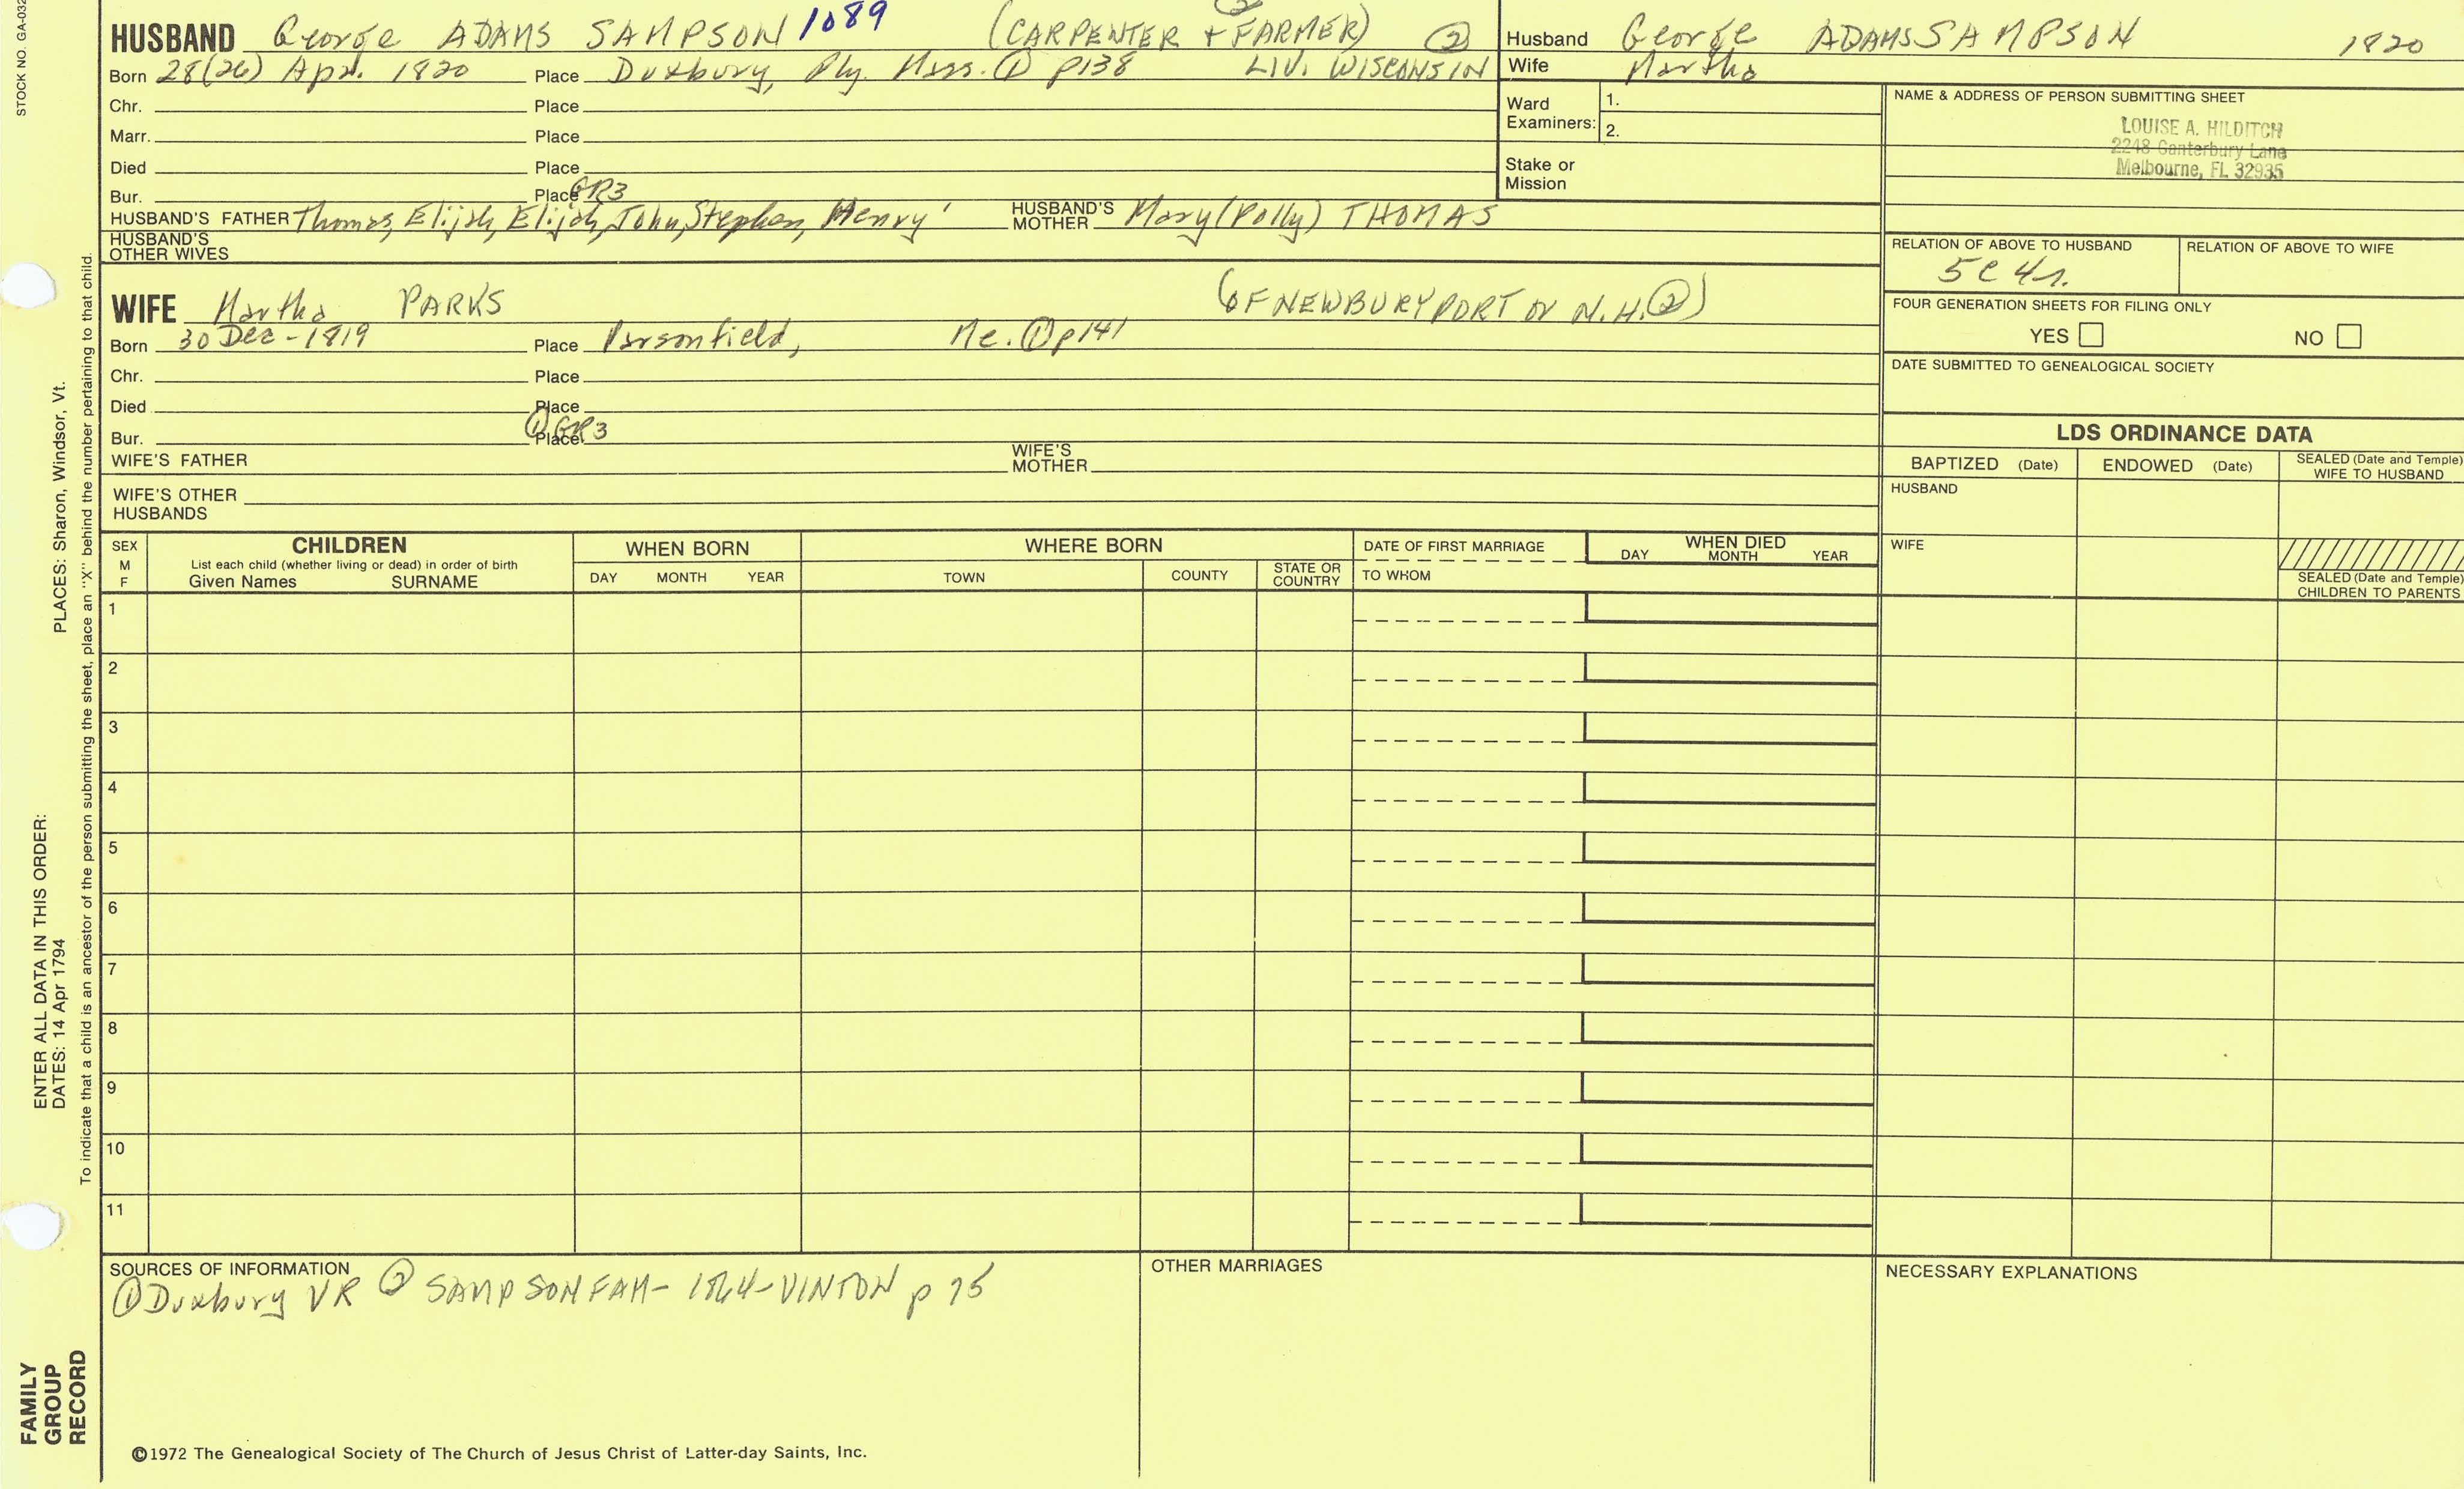 STOCK NO. GA-032
HUSBAND George ADAMS SAMPSON 1089 (CARPENTER + FARMER) ②
Born 28(26) Apr. 1820 Place Duxbury, Ply. Mass. ① p138 LIV. WISCONSIN
Chr. Place
Marr. Place
Died Place
Bur. Place GR3
HUSBAND'S FATHER Thomas, Elijah, Elijah, John, Stephen, Henry' HUSBAND'S MOTHER Mary (Polly) THOMAS
HUSBAND'S OTHER WIVES
WIFE Martha PARKS (OF NEWBURYPORT or N.H. ②)
Born 30 Dec - 1819 Place Parsonfield, Me. ① p141
Chr. Place
Died Place
Bur. Place ① GR3
WIFE'S FATHER WIFE'S MOTHER
WIFE'S OTHER HUSBANDS
Husband George ADAMS SAMPSON 1820
Wife Martha
Ward Examiners: 1.
2.
Stake or Mission
NAME & ADDRESS OF PERSON SUBMITTING SHEET
LOUISE A. HILDITCH
2248 Canterbury Lane
Melbourne, FL 32935
RELATION OF ABOVE TO HUSBAND RELATION OF ABOVE TO WIFE
5C 4r.
FOUR GENERATION SHEETS FOR FILING ONLY
YES NO
DATE SUBMITTED TO GENEALOGICAL SOCIETY
LDS ORDINANCE DATA
BAPTIZED (Date) ENDOWED (Date) SEALED (Date and Temple) WIFE TO HUSBAND
HUSBAND
WIFE
SEALED (Date and Temple) CHILDREN TO PARENTS
SEX M F
CHILDREN
List each child (whether living or dead) in order of birth
Given Names SURNAME
WHEN BORN
DAY MONTH YEAR
WHERE BORN
TOWN COUNTY STATE OR COUNTRY
DATE OF FIRST MARRIAGE
TO WHOM
WHEN DIED
DAY MONTH YEAR
1
2
3
4
5
6
7
8
9
10
11
SOURCES OF INFORMATION
① Duxbury VR ② SAMPSON FAM- 1864-VINTON p 75
OTHER MARRIAGES
NECESSARY EXPLANATIONS
©1972 The Genealogical Society of The Church of Jesus Christ of Latter-day Saints, Inc.
FAMILY
GROUP
RECORD
ENTER ALL DATA IN THIS ORDER:
DATES: 14 Apr 1794 PLACES: Sharon, Windsor, Vt.
To indicate that a child is an ancestor of the person submitting the sheet, place an "X" behind the number pertaining to that child.